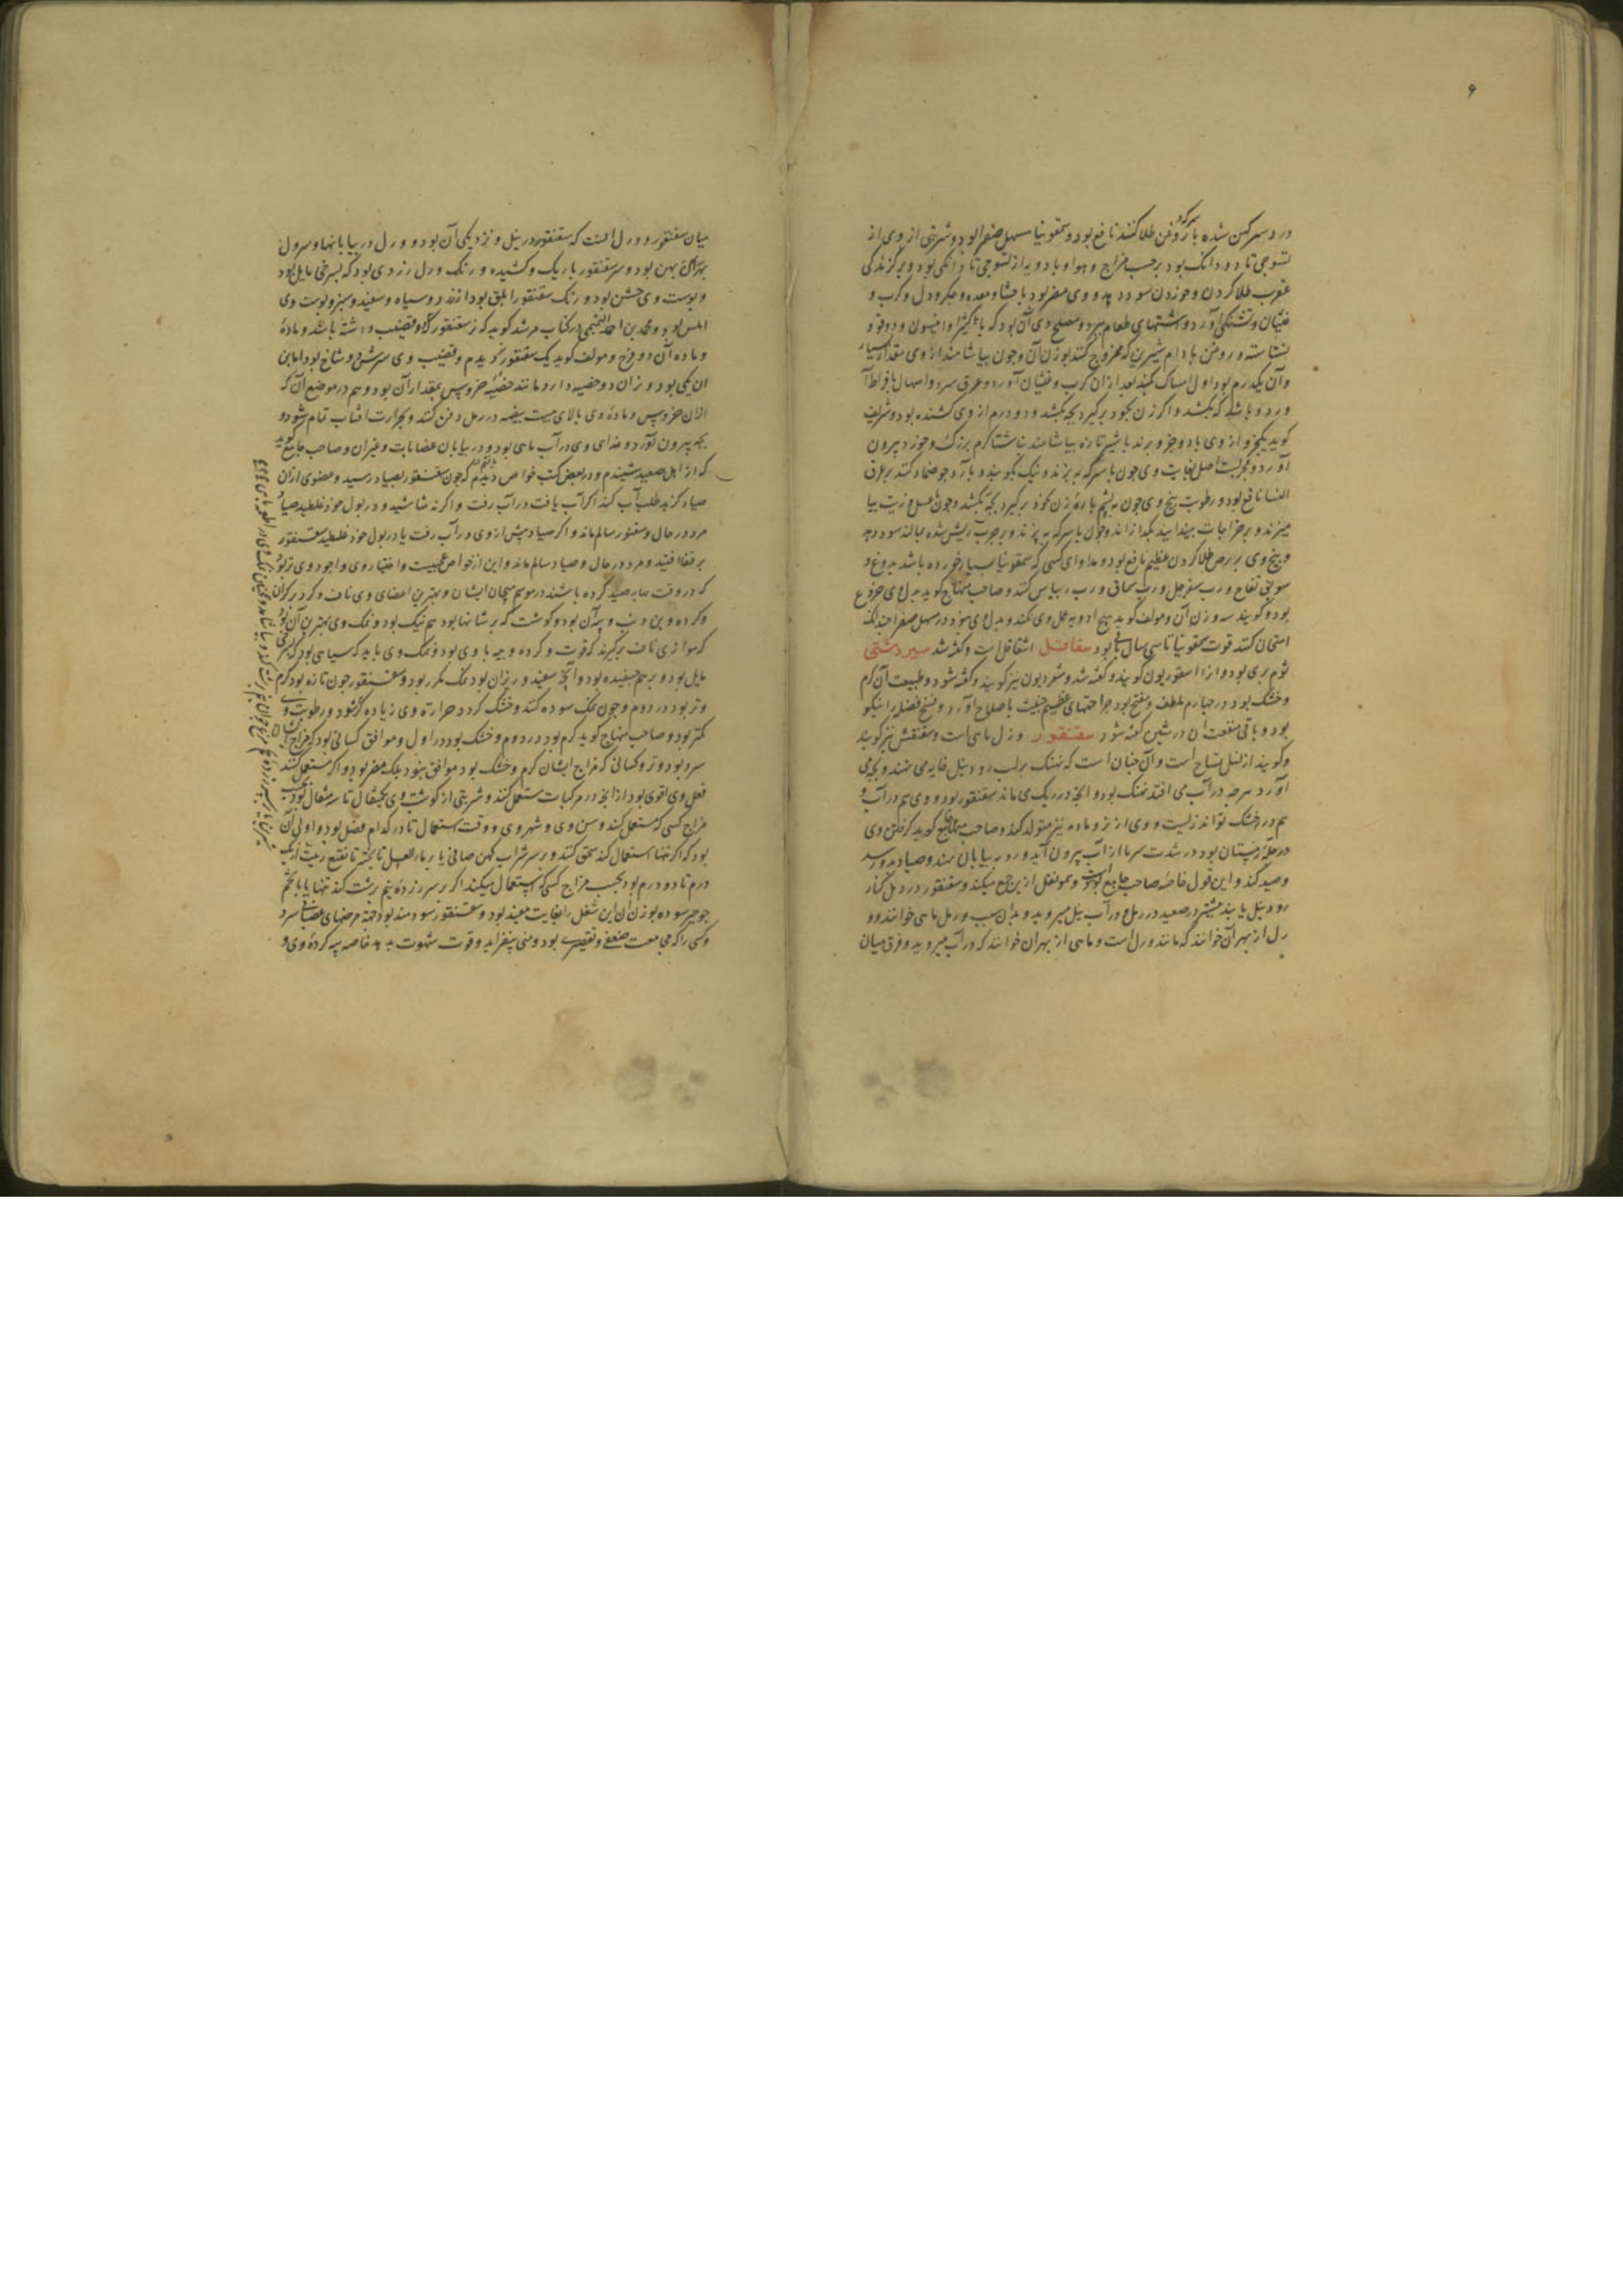 ۶
در د سر کهن شده با سرکه و روغن طلا کنند نافع بود و سقمونیا مسهل صفرا بود و شربتی از وی از
تسوجی تا دو دانک بود بر حسب مزاج و هوا و با دویه از تسوجی تا دانکی بود و بر گزندگی
عقرب طلا کردن و خوردن سود دهد و وی مضر بود باحشا و معده و جکر و دل و کرب و
غثیان و تشنکی آورد و اشتهای طعام ببرد و مصلح وی آن بود که با کثیرا و انیسون و دوقو و
نشاسته و روغن بادام شیرین که ممزوج کنند بوزن آن و چون بیاشامند از وی مقدار بسیار
و آن یکدرم بود اول امساک کند بعد از آن کرب و غشیان آورد و عرق سرد و اسهال بافراط آ
ورد و باشد که بکشد و اکر زن بخود برکیرد بچه بکشد و دو درم از وی کشنده بود و شریف
کوید یکجزو از وی با دو جزو برند با شیر تازه بیاشامند بناشتا کرم بزرک و خورد بیرون
آورد و مجربست اصل بغایت وی چون با سرکه بپزند و نیک بکوبند و با آرد جو ضماد کنند بر عرق
النسا نافع بود و رطوبت بیخ وی چون به پشم پاره زن بخود برکیرد بچه بکشد و چون با عسل و زیت بیا
میزند و بر خراجات بیندایند بکدازاند و چون با سرکه بپزند و بر جرب ریش شده بمالند سود دهد
و بیخ وی بر برص طلا کردن عظیم نافع بود و مداوای کسی که سقمونیا بسیار خورده باشد بدوغ و
سویق تفاح و رب سفرجل و رب سماق و رب ریباس کنند و صاحب منهاج کوید بدل وی خروع
بود و کویند سه وزن آن و مولف کوید هیچ ادویه عمل وی نکند و بدل وی نبود در مسهل صفرا چندانک
امتحان کنند قوت سقمونیا تا سی سال باقی بود سقاقل اشقاقل است و کفته شد سیر دشتی
ثوم بری بود و از اسقوردیون کویند و کفته شد و شقردیون نیز کویند و کفته شود و طبیعت آن کرم
و خشک بود در چهارم ملطف و مفتح بود جراحتهای عظیم خبیث با صلاح آورد و نسخ فضل را نیکو
بود و باقی منفعت آن در شین کفته شود سقنقور ورل ماهی است و سقنقس نیز کویند
و کویند از نسل تمساح است و آن چنان است که نهنک بر لب رود نیل خایه می نهد و بچه می
آورد هرچه در آب می افتد نهنک بود و آنچه در ریک می ماند سقنقور بود و وی هم در آب و
هم در خشک تواند زیست و وی از نر و ماده نیز متولد کند و صاحب جامع کوید کرفتن وی
در چله زمستان بود در شدت سرما از آب بیرون آید و رو به بیابان نهد و صیاد بدو رسد
و صید کند و این قول خاصه صاحب جامع است و بمونقل ازین جمع میکند و سقنقور در نیل کنار
رود نیل یابند بیشتر در صعید در رمل و در آب نیل میرود بدو بدان سبب ورل ماهی خوانند و و
رل از بهر آن خوانند که مانند ورل است و ماهی از بهر آن خوانند که در آب میرود و فرق میان
میان سقنقور و ورل آنست که سقنقور در نیل و نزدیکی آن بود و ورل در بیابانها و سر ول
پهن بود و سر سقنقور باریک و کشیده و رنک ورل زردی بود که بسرخی مایل بود
و پوست وی خشن بود و رنک سقنقور ابلق بود از زرد و سیاه و سفید و سبز و پوست وی
املس بود و محمد بن احمد التمیمی در کتاب مرشد کوید که نر سقنقور را دو قضیب داشته باشد و مادهٔ
و ماده آن دو فرج و مولف کوید یک سقنقور نر دیدم و قضیب وی سرش دو شاخ بود اما بن
آن یکی بود و نر آن دو خصیه دارد مانند خصیهٔ خروس بمقدار آن بود و هم در موضع آن که
از آن خروس و مادهٔ وی بالای بیست بیضه در رمل دفن کند و بحرارت افتاب تمام شود و
بچه بیرون آورد و غذای وی در آب ماهی بود و در بیابان عضابات و غیر آن و صاحب جامع کوید
که از اهل صعید شنیدم و در بعض کتب خواص دیدم که چون سقنقور بصیاد رسید و عضوی از آن
صیاد کزید طلب آب کند اکر آب یافت در آب رفت و اکر نه شاشید و در بول خود غلطید صیاد
مرد در حال و سقنقور سالم ماند و اکر صیاد پیش از وی در آب رفت یا در بول خود غلطید سقنقور
بر قفا افتید و مرد در حال و صیاد سالم ماند و این از خواص عجیبست و اختیار وی و اجود وی نر بود
که در وقت بهار صید کرده باشند در موسم هیجان ایشان و بهترین اعضای وی ناف و کرد بر کرد آن
و کرده و بن دنب و پیه آن بود و کوشت که بر شانها بود هم نیک بود و نمک وی بهترین آن بود
که موازی ناف برکیرند که قوت و کرده و پیه با وی بود و نمک وی باید که سیاهی بود که بسرخی
مایل بود و بر هم چسفیده بود و آنچه سفید و ریزان بود نمک مکرر بود و سقنقور چون تازه بود کرم
و تر بود در دوم و چون نمک سوده کنند و خشک کردد حرارة وی زیاده کردد و رطوبت وی
کمتر بود و صاحب منهاج کوید کرم بود در دوم و خشک بود در اول و موافق کسانی بود که مزاج ایشان
سرد بود و تر و کسانی که مزاج ایشان کرم و خشک بود موافق نبود بلک مضر بود و اکر مستعمل کنند
فعل وی اقوی بود از آنچه در مرکبات مستعمل کنند و شربتی از کوشت وی یکمثقال تا سه مثقال بود بحسب
مزاج کسی که مستعمل کند و سن وی و شهر وی و وقت استعمال تا در کدام فصل بود و اولی آن
بود که اکر تنها استعمال کند سحق کنند و بر سر شراب کهن صافی یا بر ماء العسل نا پخته تا نقیع زبیب از یک
درم تا دو درم بود بحسب مزاج کسی که استعمال میکند اکر بر سر زردهٔ نیم برشت کند تنها یا با تخم
جرجیر سوده بوزن آن این شغل را بغایت مفید بود و سقنقور سودمند بود جهة مرضهای عصبانی سرد
و کسی را که مجامعت ضعفی و تقصیری بود و منی بیفزاید و قوت شهوت بدهد خاصه پیه کردهٔ وی و